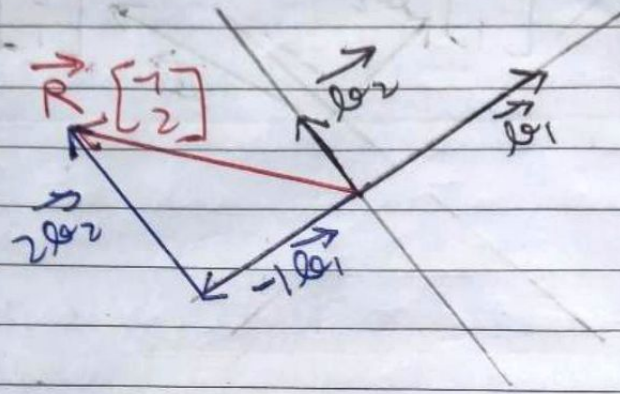 R⃗ [-1
2]
b⃗2
b⃗1
2b⃗2
-1b⃗1